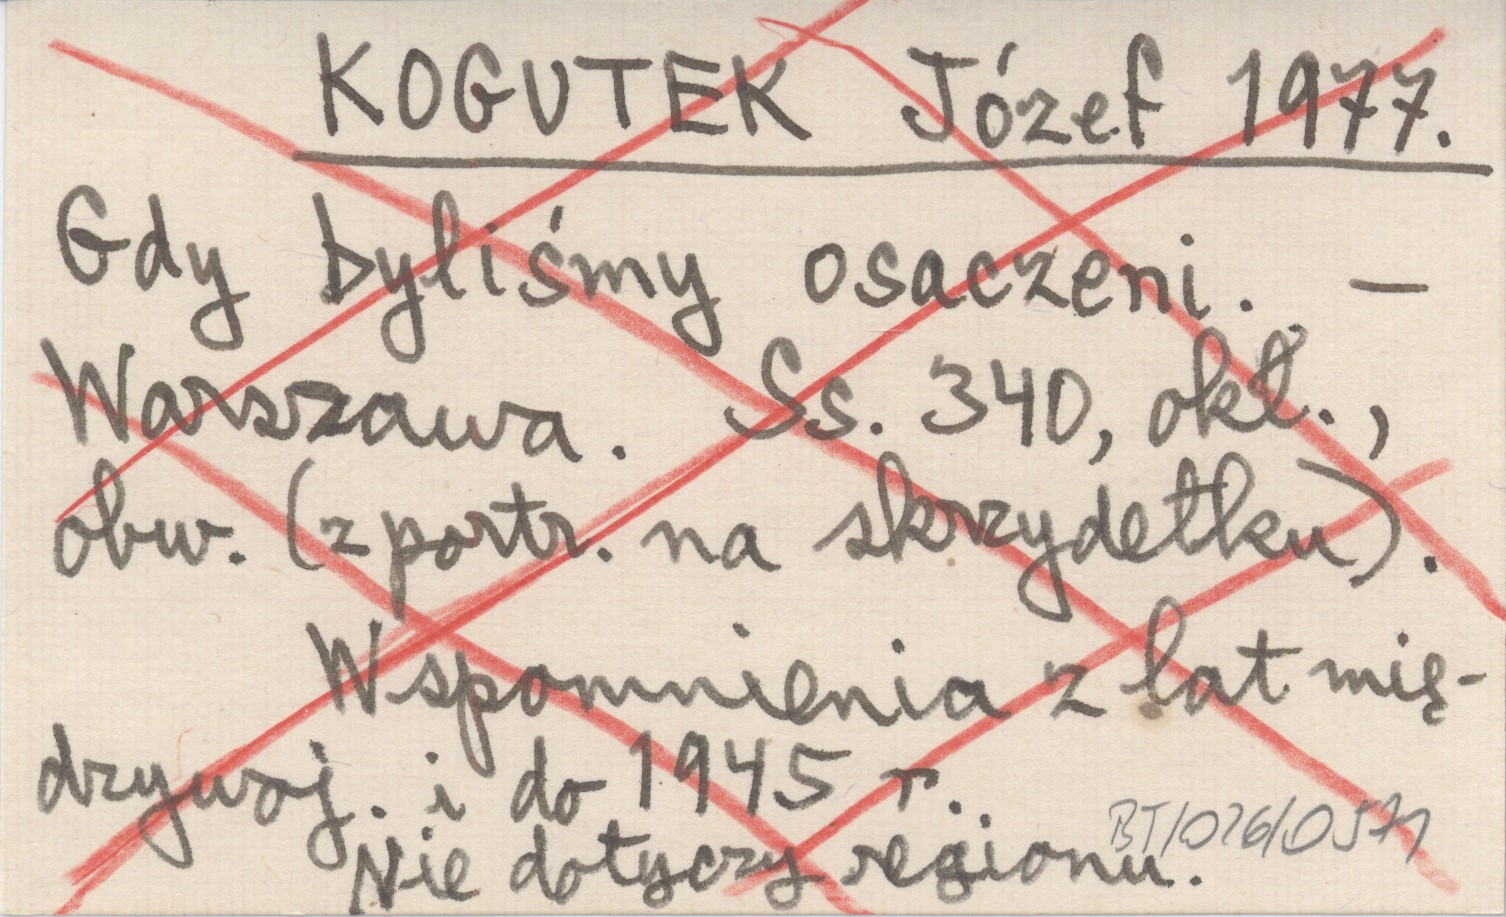 KOGUTEK Józef 1977.
Gdy byliśmy osaczeni. —
Warszawa. Ss. 340, okł.,
obw. (z portr. na skrzydełku).
Wspomnienia z lat mię-
dzywoj. i do 1945 r.
Nie dotyczy regionu.
BT/026/0571